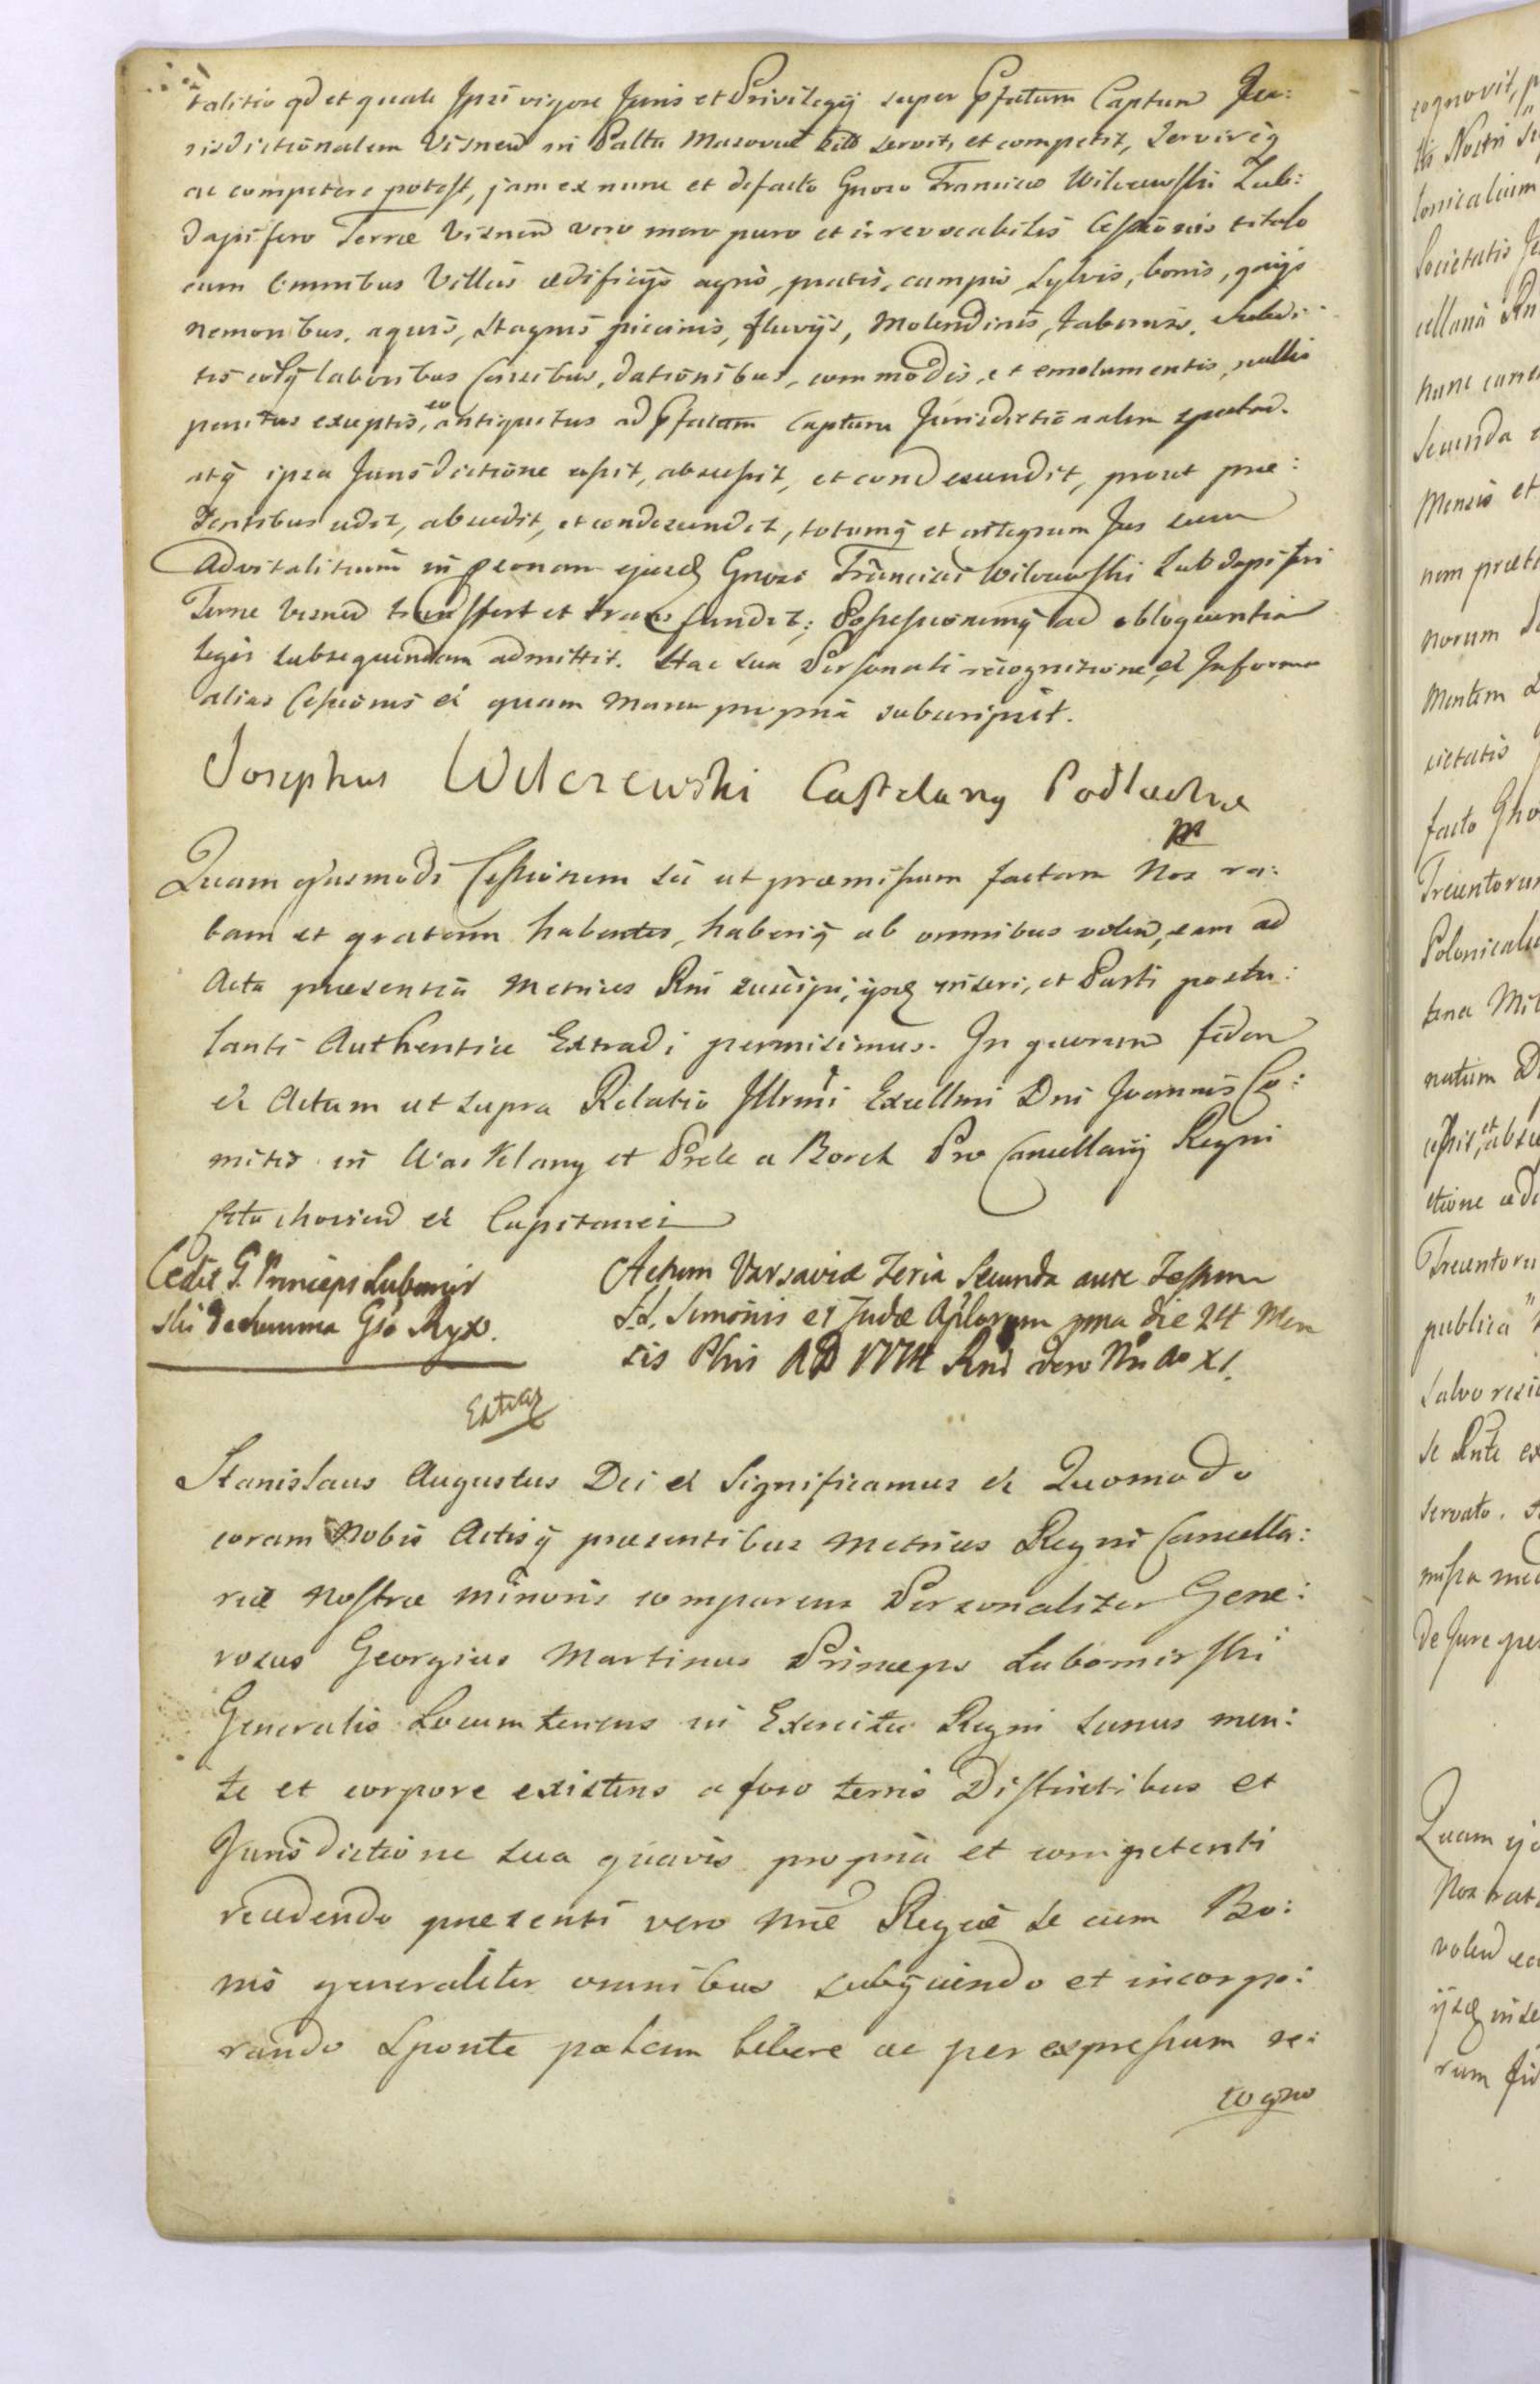 talitio qd et quale Ipsi vigore Juris et Privilegij super Pfatum Captum Ju:
risdictionalem Visnen in Palttu Masoviae sito servit, et competit, servireq
ac competere potest, jam ex nunc et defacto Gnoso Francisco Wilczewski Sub:
dapifero Terrae Visnen vero mero puro et irrevocabilis Cessionis titulo
cum Omnibus Villis aedificijs agris, pratis, campis Sylvis, bonis, gaijs
nemoribus, aquis, stagnis piscinis, fluvijs, Molendinis, Tabernis, Subdi:
tis eorq laboribus Censibus, dationibus, commodis, et emolumentis, nullis
penitus exceptis, eo antiquitus ad Pfatam Capturam Jurisdictionalem spectan.
atq ipsa Jurisdictione cessit, abscessit, et condescendit, prout prae:
sentibus cedit, abscedit, et condescendit, totumq et integrum Jus suum
Advitalitium in personam ejusd Gnosi Francisci Wilczewski Subdapiferi
Terrae Visnen transffert et transfundit; Possessionemq ad obloquentiam
legis subsequendam admittit. Hac sua Personali recognitione, et Informa
alias Cessionis et quam Manu propria subscripsit.
Josephus Wilczewski Castelany Podlachiae
mp
Quam ejusmodi Cessionem sic ut praemissum factam Nos ra:
tam et gratam habentes, haberiq ab omnibus volen, eam ad
Acta praesentia Metrices Rni suscipi, ijsq inseri, et Parti postu:
lanti Authentice Extradi permisimus. In quorum fidem
et Actum ut supra Relatio Illrmi Excellmi Dni Joannis Co:
mitis in Warklany et Prele a Borch Pro Cancellarij Regni
et Capitanei
Cedit G. Princeps Lubomir
ski Gso Ryx.
Actum Varsaviae Feria Secunda ante Festum
S.S. Simonis et Judae Aplorum pma die 24 Men
sis Obris AD 1774 Rni vero Nri Ao XI.
Extra
Stanislaus Augustus Dei et Significamus et Quomodo
coram Nobis Actisq praesentibus Metrices Regni Cancella:
riae Nostrae minoris comparens Personaliter Gene:
rosus Georgius Martinus Princeps Lubomirski
Generalis Locumtenens in Exercitu Regni sanus men:
te et corpore existens a foro terris Districtibus et
Jurisdictione sua quavis propria et competenti
recedendo praesenti vero Metricae Regiae se cum Bo:
nis generaliter omnibus subijciendo et incorpo:
rando Sponte palam libere ac per expressum re:
cogno
cognovit, p
tis Nostri
lonicalium
Societatis Je
cellana
hunc
Secunda
Mensis et
nem praet
norum
Mentem
cietatis
facto Gno
Trecentorum
Polonicali
tena Mil
natum D
cessit, et absc
ctione cedi
Trecentoru
publica
Salvo
se Pnte ex
servato.
missa med
De Jure
Quam ej
Nos rat
volen ea
ijsq inse
rum fid